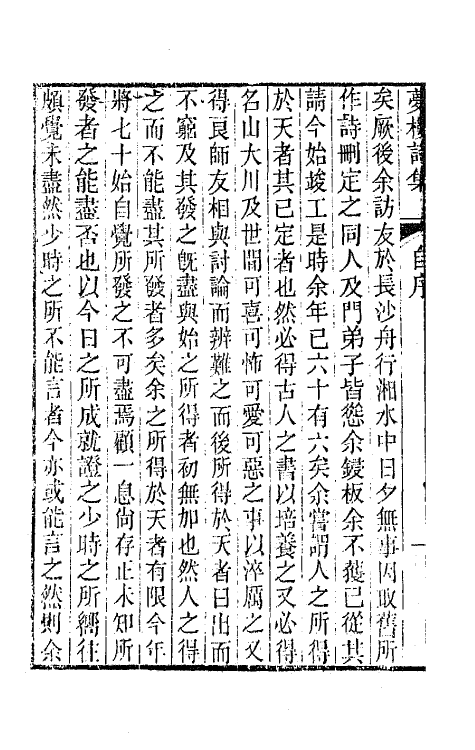 夢樓詩集
自序
一
矣厥後余訪友於長沙舟行湘水中日夕無事因取舊所
作詩刪定之同人及門弟子皆慫余鋟板余不獲已從其
請今始竣工是時余年已六十有六矣余嘗謂人之所得
於天者其已定者也然必得古人之書以培養之又必得
名山大川及世間可喜可怖可愛可惡之事以淬厲之又
得良師友相與討論而辨難之而後所得於天者日出而
不窮及其發之旣盡與始之所得者初無加也然人之得
之而不能盡其所發者多矣余之所得於天者有限今年
將七十始自覺所發之不可盡焉顧一息尙存正未知所
發者之能盡否也以今日之所成就證之少時之所嚮往
頗覺未盡然少時之所不能言者今亦或能言之然則余